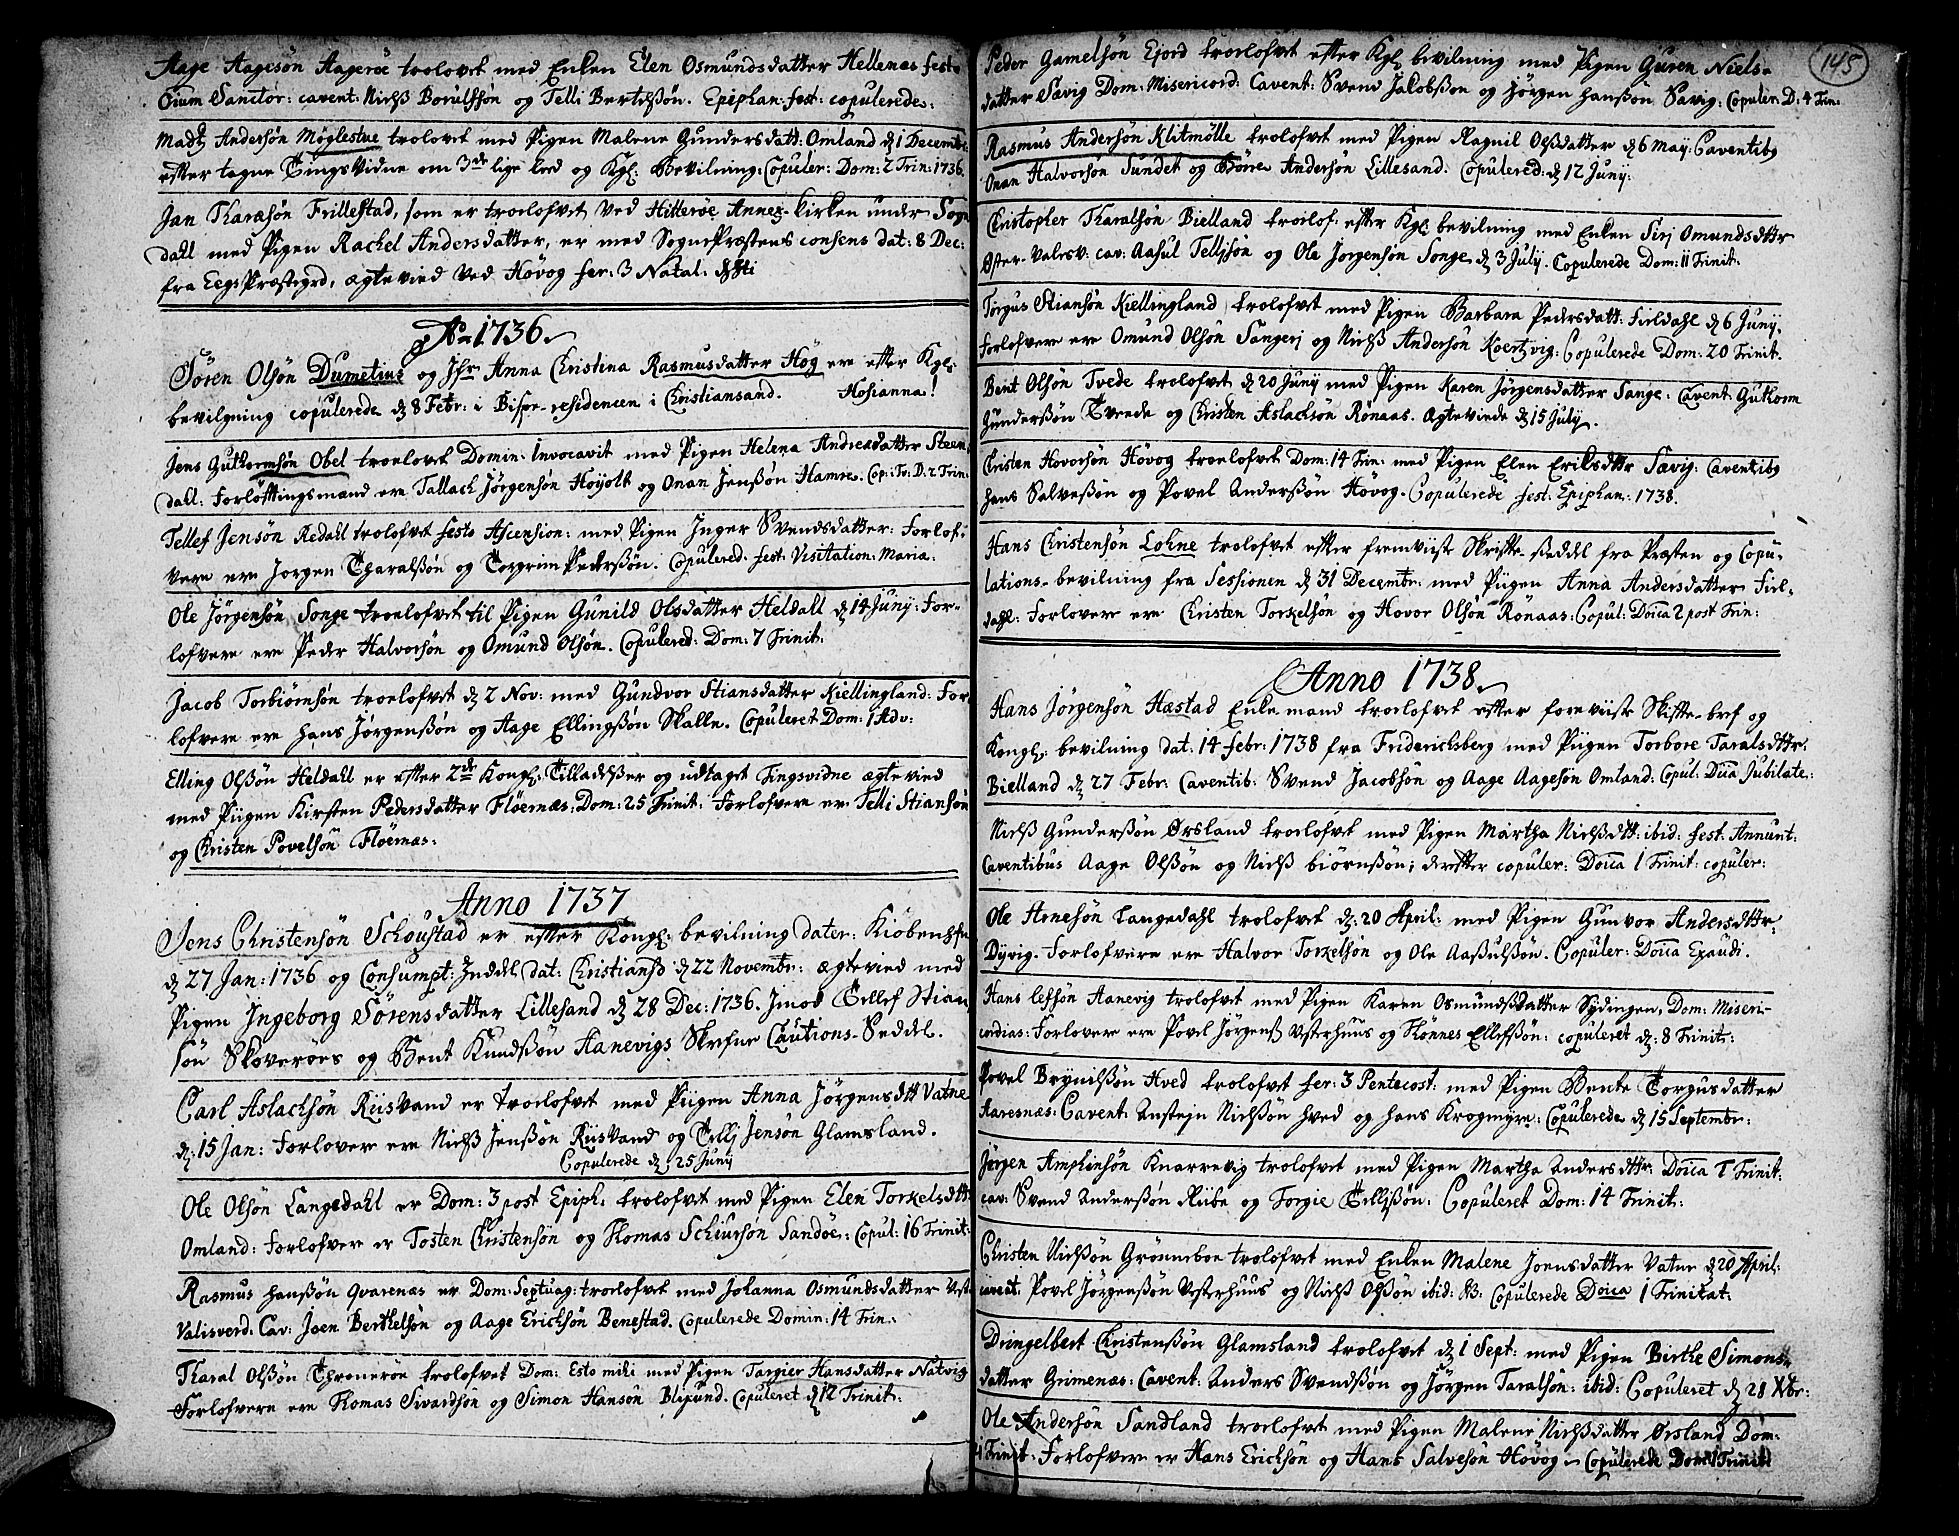 Aage Aagesön Aageröe troelovet med Enken Elen Osmundsdatter Hellenes festo
Oium Sanctor: cavent: Nielß Borulfsön og Telli Bertelßön. Epiphan: fest: copuleredes:
Madtz Andersön Möglestue trolovet med Pigen Malene Gundersdatt: Omland d 1 Decembr:
efter tagne Tingsvidne om 3de lige led og Kgl: Bevilning: Copuler: Dom: 2 Trin: 1736.
Jan Tharasön Frillestad, som er troelofvet ved Hitteröe Annex-kirken under Sogn
dall med Pigen Rachel Andersdatter, er med SognePræstens consens dat: 8 Dec:
fra Eegs Præstegrd, ægteviед ved Hövog fer: 3 Natal:
Ao 1736.
Sören Olsön Dumetius og Jfr Anna Christina Rasmusdatter Hög ere efter Kgl:
bevilgning copulerede d 8 Febr: i Bispe-residencen i Christiansand. Hosianna!
Jens Guttormsön Obel troelovet Domin: Invocavit med Pigen Helena Andreasdatter Steen
dall: Forlöftningsmand ere Tallach Jörgensön Höyolt og Onan Jenßön Hamre. Cop: Fr: D: 2 Trin:
Tellef Jensön Redahl trolofvet festo Ascension: med Pigen Inger Svendsdatter: Forlof-
vere ere Jorgen Tharalßön og Torgrim Pederßön. Copulered: fest: Visitation: Maria.
Ole Jörgensön Songe troelofvet til Pigen Gunild Olsdatter Heldall d 14 Junij: For-
lofvere ere Peder Halvorsön og Omund Olsön. Copulered: Dom: 7 Trinit:
Jacob Torbiörnsön troelofvet d 2 Nov: med Gundvor Stiansdatter Kiellingland: For
lofvere ere Hans Jörgenßön og Aage Ellingßön Skalle. Copuleret Dom: 1 Adv:
Elling Olßön Heldahl er efter 2de Kongl: Tilladelßer og udtaget Tingsvidne ægteviед
med Piigen Kirsten Pedersdatter Flöernæs: Dom: 25 Trinit: Forlofvere er: Telli Stiansön
og Christen Povelsön Flöernæs:
Anno 1737
Jens Christensön Schoustad er efter Kongl: bevilning dater: Kiöbenhfn
d 27 Jan: 1736 og Consumpt: Zeddel dat: Christiansd d 22 Novembr: ægteviед med
Pigen Ingeborg Sörensdatter Lillesand d 28 Dec: 1736. Imod Tellef Stian
sön Skoveröes og Bent Knudßön Aanevigs Skrefne Cautions-Seddel.
Carl Aslachsön Riisvand er troelofvet med Piigen Anna Jörgensdtt Vatne
d: 15 Jan: Forlovere ere Nielß Jenßön Riisvand og Tellj Jensön Glamsland.
Copulerede d: 25 Junij
Ole Olsön Langedahl er Dom: 3 post Epiph: trolofvet med Pigen Elen Torkelsdtt:
Omland: Forlofver er Tosten Christensön og Thomas Schiursön Sandöe: Copul: 16 Trinit:
Rasmus Hanßön Qvarenæs er Dom: Septuag: trolofvet med Johanna Osmundsdatter Vest
Valisverd: Cav: Joen Berthelsön og Aage Erichsön Benestad. Copulerede Domin: 14 Trin:
Tharal Olßön Throneröe trolofvet Dom: Esto mihi med Pigen Targier Hansdatter Natvig
Forlofvere ere Thomas Sivardsön og Simon Hansön Blixund. Copuleret d 12 Trinit:
145
Peder Gamelsön Ejord troelofvet efter Kgl: bevilning med Pigen Guren Niels-
datter Sævig Dom: Misericord: Cavent: Svend Jakobßön og Jörgen Hanßön Sævig: Copuler: D: 4 Trin:
Rasmus Andersön Klitmölle trolofvet med Pigen Ragnil Olßdatter d 6 May: Caventibg
Onan Halvorsön Sundet og Börre Andersön Lillesand. Copulered: d 12 Junij:
Christopher Tharalsön Bielland troelof: efter Kgl: bevilning med Enken Sirj Omundsdttr
Öster-Valesv: cav: Aasul Telljsön og Ole Jörgensön Songe d 3 Julij. Copulerede Dom: 11 Trinit:
Torgus Stiansön Kiellingland trolofvet med Pigen Barbara Pedersdatt: Fieldahl d 6 Junij.
Forlofvere ere Omund Olsön Sangerj og Nielß Andersön Koertzvig: Copulerede Dom: 20 Trinit.
Bent Olsön Tvede trolofvet d 20 Junij med Pigen Karen Jörgensdatter Sange: Cavent: Gutkorm
Gunderßön Tvede og Christen Aslachsön Rönaas. Ægteviede d 15 Julij.
Christen Hovorsön Hövog troelofvet Dom: 14 Trin: med Pigen Elen Eriksdttr Sævig: Caventibg
Hans Salveßön og Povel Anderßön Hövog. Copulerede fest: Epiphan: 1738.
Hans Christensön Lohne trolofvet efter fremviiste Skrifte-Seddel fra Præsten og Copu-
lations-bevilning fra Sessionen d 31 Decembr: med Piigen Anna Andersdatter Fiel-
dahl: Forlovere ere Christen Torkelsön og Hovor Olsön Rönaas: Copul: Doica 2 post Trin:
Anno 1738.
Hans Jörgensön Hæstad Enkemand trolofvet efter foreviiste Skifte-bref og
Kongl: bevilning dat: 14 Febr: 1738 fra Friderichsberg med Piigen Torbore Taralsdttr.
Bielland d 27 Febr: Caventib: Svend Jacobsön og Aage Aagesön Omland: Copul: Doica Jubilate:
Nielß Gunderßön Örsland trolofvet med Pigen Martha Nielßdtt: ibid: fest: Annunt:
Caventibus Aage Olßön og Nielß Biörnßön; derefter copuler: Doica 1 Trinit: copuler:
Ole Arnesön Langedahl trolofvet d: 20 April: med Pigen Gunvor Andersdttr:
Dÿvig. Forlofvere ere Halvor Torkelsön og Ole Aaßulßön. Copuler: Doica Exaudi.
Hans Lefsön Aanevig trolofvet med Pigen Karen Osmundsdatter Sydingen, Dom: Miseri-
cordias: Forlovere ere Povel Jörgenß Vesterhuus og Thönnes Ellefßön: copuleret d: 8 Trinit:
Povel Brynilßön Hved trolofvet fer: 3 Pentecost: med Pigen Bente Torgusdatter
Aaresnæs: Cavent: Anstejn Nielßön Hved og Hans Krogmyre: Copulerede d 15 Septembr:
Jörgen Amphinsön Knarrevig trolofvet med Pigen Martha Andersdttr: Doica T Trinit:
cav: Svend Anderßön Riibe og Torgie Telljßön: Copuleret Dom: 14 Trinit:
Christen Nielßön Grönneboe trolofvet med Enken Malene Joensdatter Vatne d 20 April:
cavent: Povel Jörgenßön Vesterhuus og Nielß Olßön ibid: Copulerede Doica 1 Trinitat:
Dringelbert Christensön Glamsland trolofvet d 1 Sept: med Pigen Birthe Simons-
datter Grimenæs: Cavent: Anders Svendßön og Jörgen Taralsön: ibid: Copuleret d 28 Xbr:
Ole Andersön Sandland troelofvet med Pigen Malene Nielßdatter Örsland Dom:
Trinit: Forlofvere er Hans Ericksön og Hans Salvesön Hövog - Copulerede Dom: 1 Trinit: